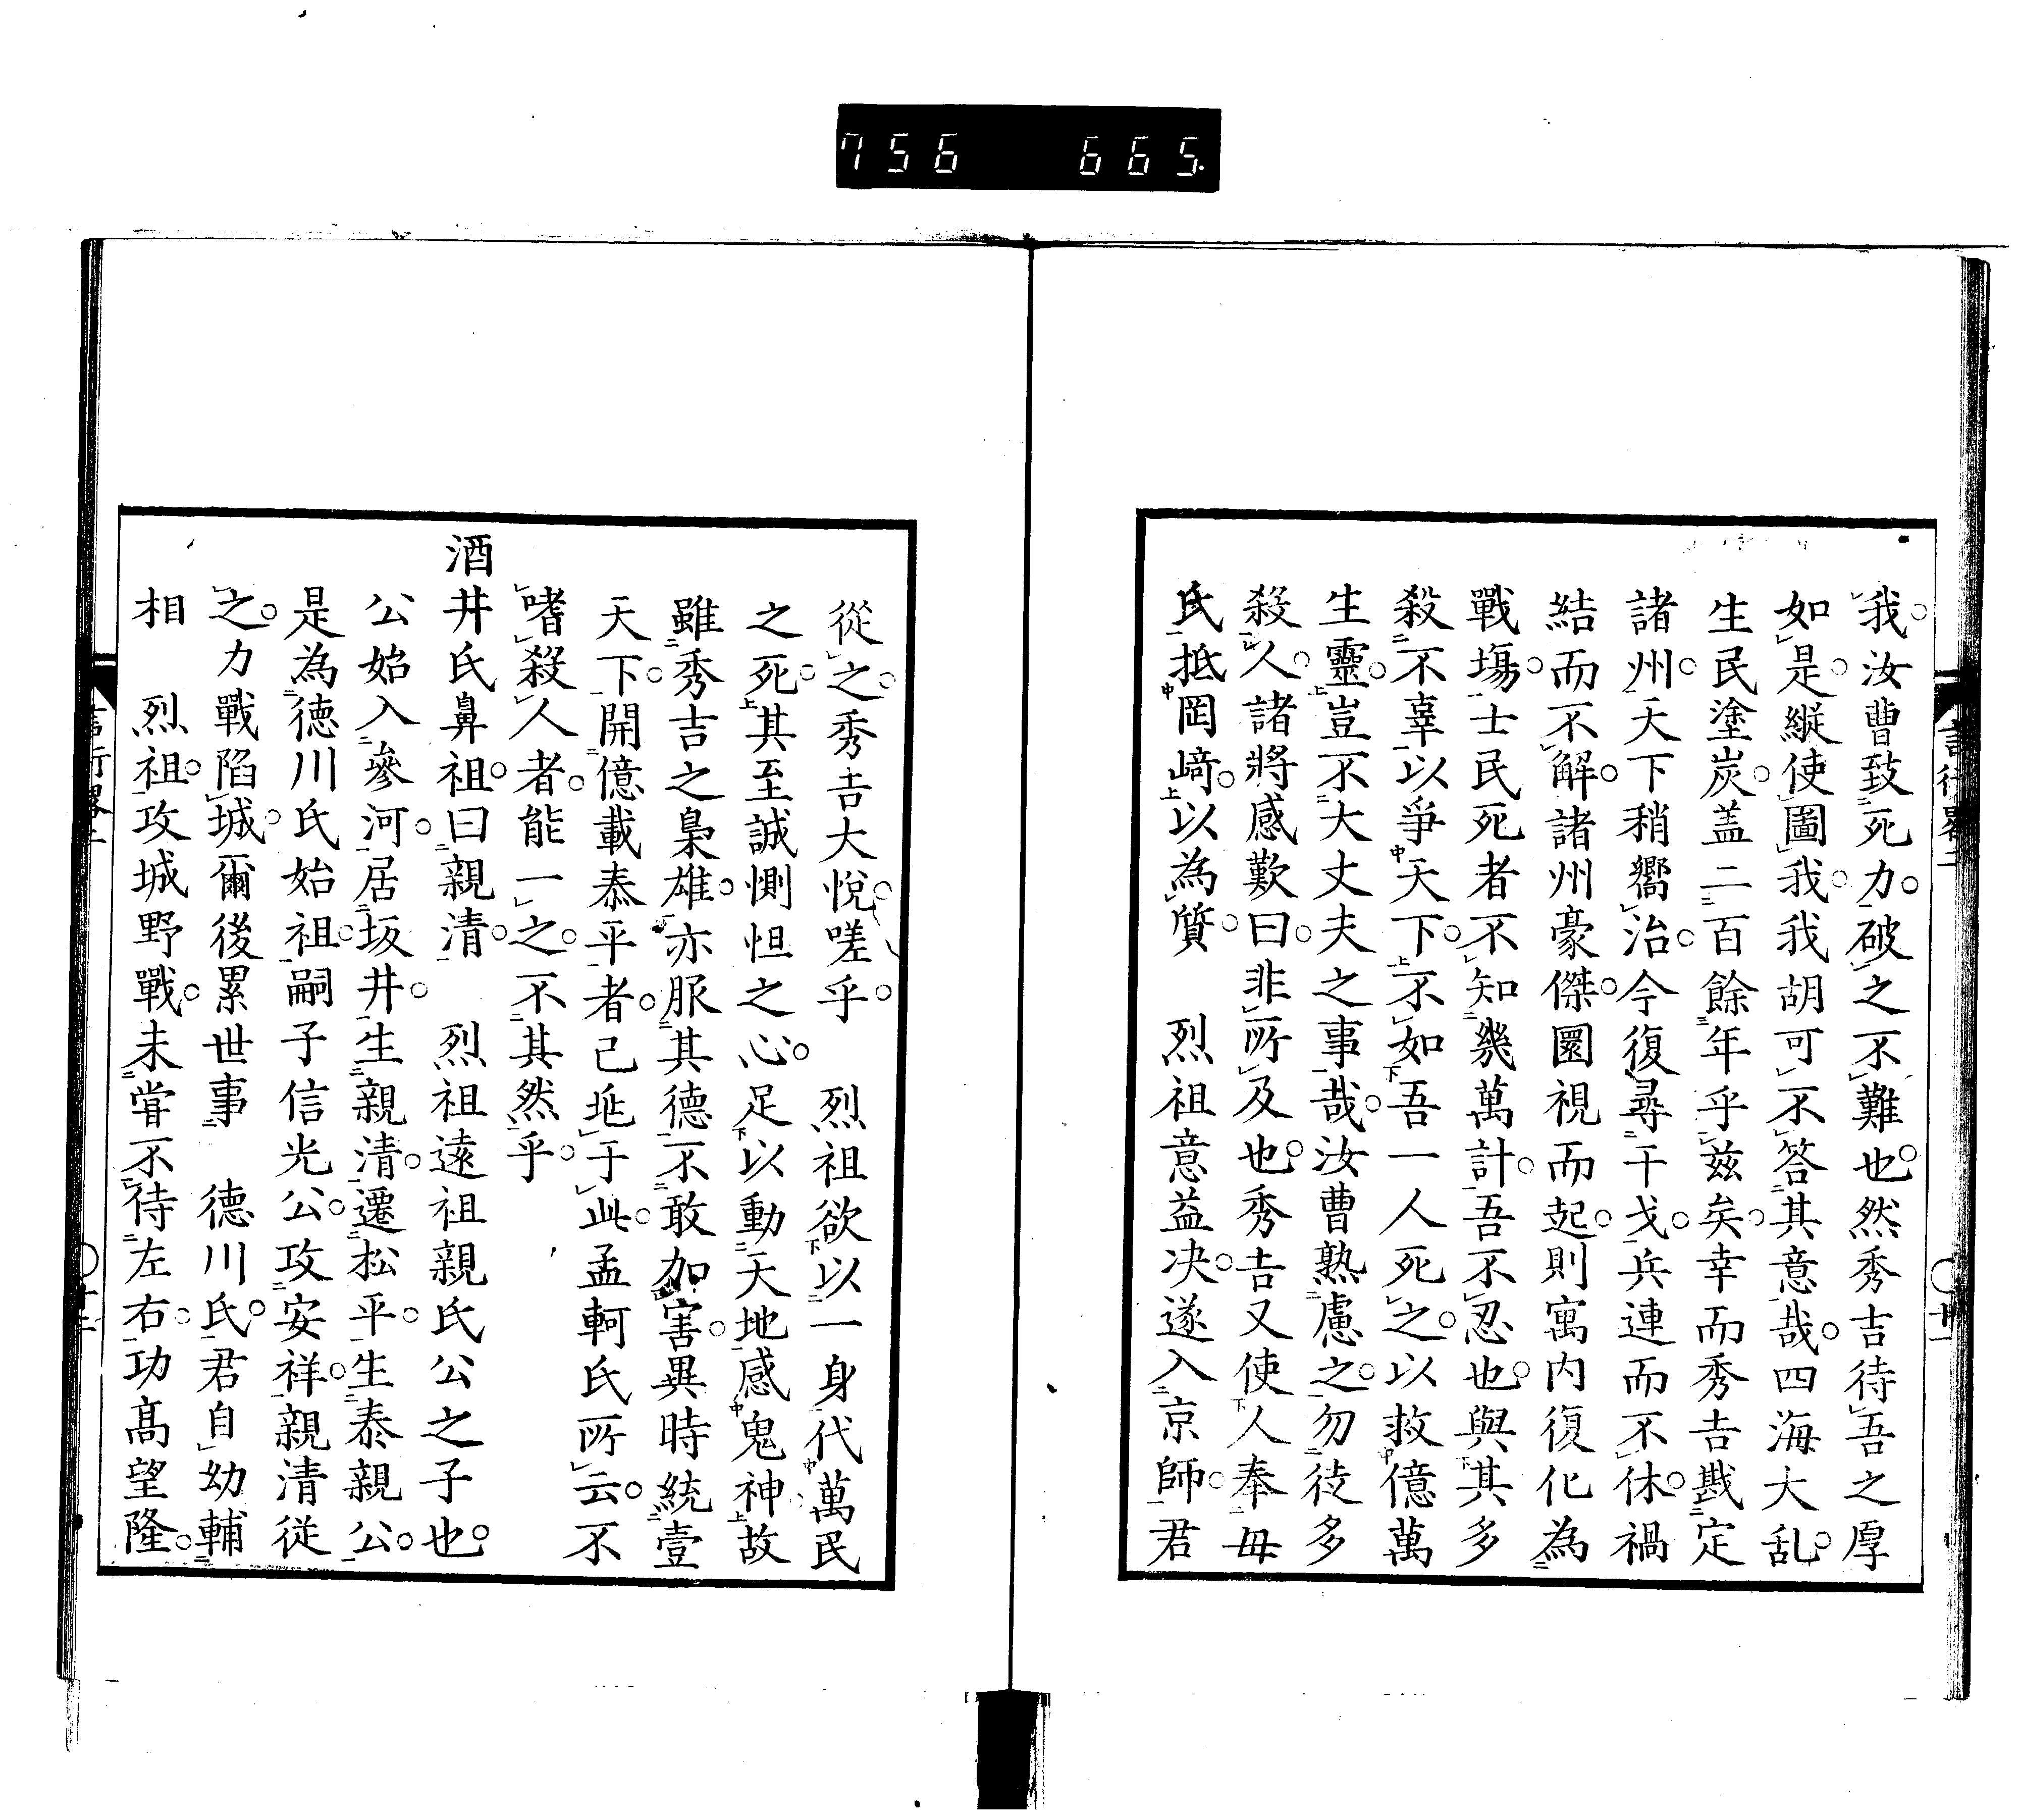 756 665
我汝曹致死力破之不難也然秀吉待吾之厚
如是縦使圖我我胡可不答其意哉四海大乱
生民塗炭盖二百餘年乎兹矣幸而秀吉戡定
諸州天下稍嚮治今復尋干戈兵連而不休禍
結而不解諸州豪傑圜視而起則寓内復化為
戰塲士民死者不知幾萬計吾不忍也與其多
殺不辜以爭天下不如吾一人死之以救億萬
生靈豈不大丈夫之事哉汝曹熟慮之勿徒多
殺人諸將感歎曰非所及也秀吉又使人奉毋
氏抵岡﨑以為質　烈祖意益决遂入京師君
從之秀吉大悅嗟乎　烈祖欲以一身代萬民
之死其至誠惻怛之心足以動天地感鬼神故
雖秀吉之梟雄亦服其德不敢加害異時統壹
天下開億載泰平者己兆于此孟軻氏所云不
嗜殺人者能一之不其然乎
酒井氏鼻祖曰親清　烈祖遠祖親氏公之子也
公始入參河居坂井生親清遷松平生泰親公
是為德川氏始祖嗣子信光公攻安祥親清従
之力戰陷城爾後累世事　德川氏君自幼輔
相　烈祖攻城野戰未嘗不待左右功髙望隆